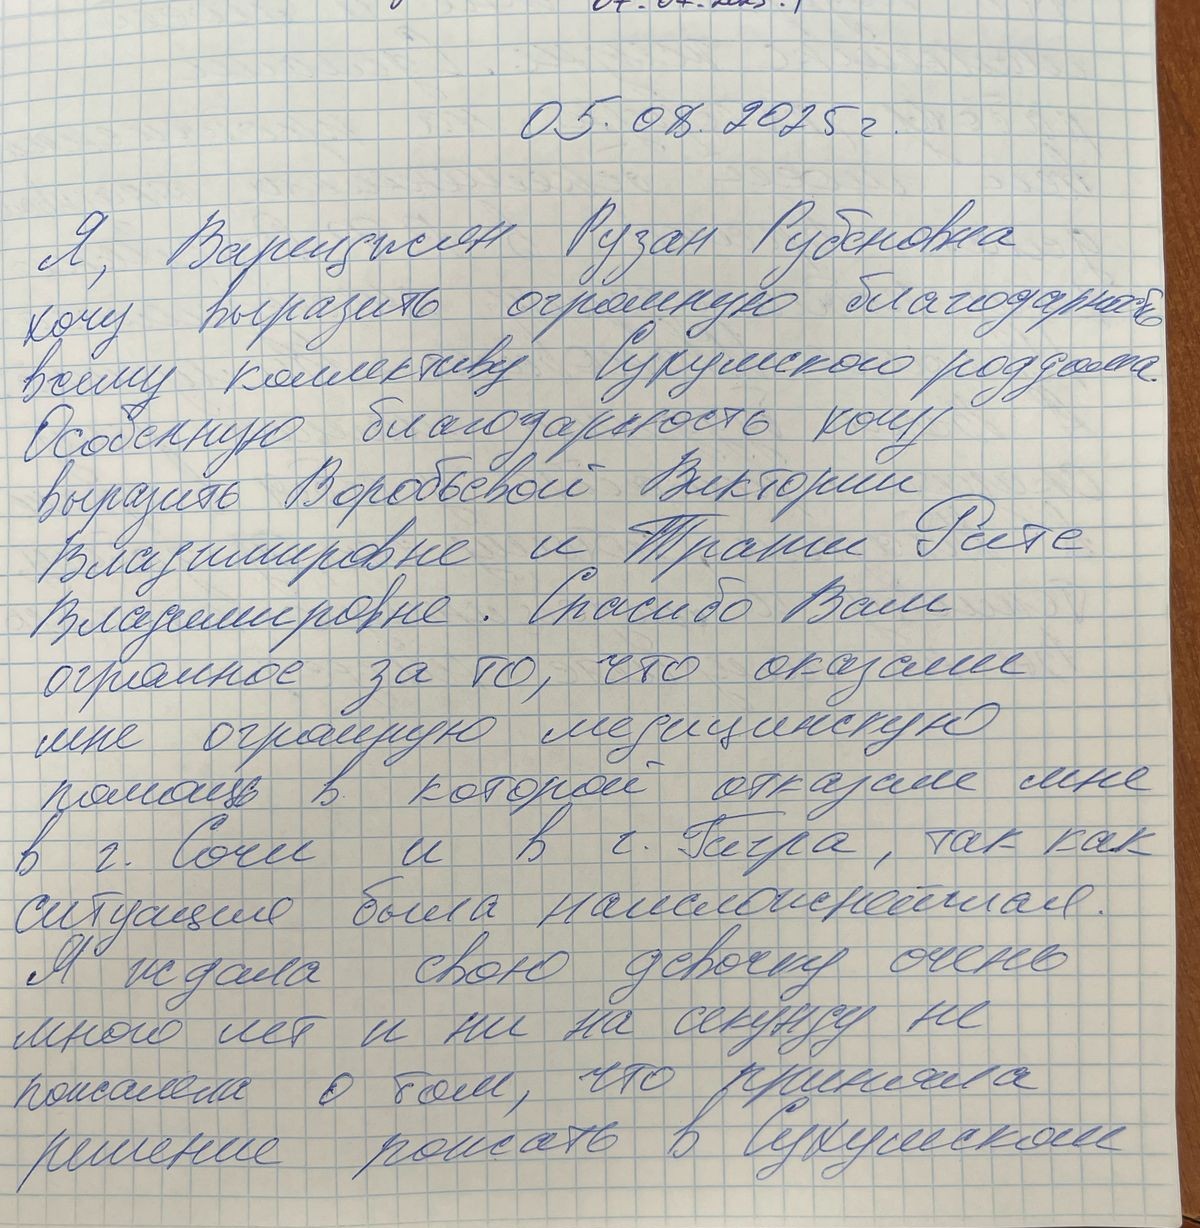 05.08.2025г.
Я, Рузан Рубеновна
хочу выразить огромную благодарность
всему коллективу Сухумского роддома.
Особенную благодарность хочу
выразить Воробьевой Виктории
Владимировне и Рите
Владимировне. Спасибо Вам
огромное за то, что оказали
мне огромную медицинскую
помощь в которой отказали мне
в г. Сочи и в г. Гагра, так как
ситуация была наисложнейшая.
Я ждала свою девочку очень
много лет и ни на секунду не
пожалела о том, что приняла
решение рожать в Сухумском